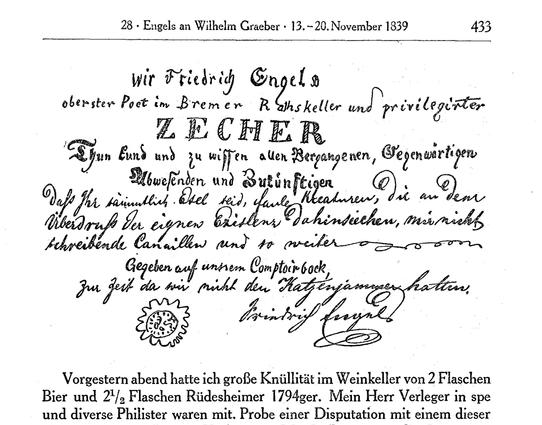 28 · Engels an Wilhelm Graeber · 13.–20. November 1839 433
wir Friedrich Engels
oberster Poet im Bremer Rathskeller und privilegirter
ZECHER
Thun kund und zu wissen allen Vergangenen, Gegenwärtigen
Abwesenden und Zukünftigen
Daß Ihr sämmtlich Esel seid, faule Kreaturen, die an dem
Überdruß der eignen Existenz dahinsiechen, mir nicht
schreibende Canaillen und so weiter
Gegeben auf unsrem Comptoirbock,
zur Zeit da wir nicht den Katzenjammer hatten.
Friedrich Engels
Vorgestern abend hatte ich große Knüllität im Weinkeller von 2 Flaschen
Bier und 2½ Flaschen Rüdesheimer 1794ger. Mein Herr Verleger in spe
und diverse Philister waren mit. Probe einer Disputation mit einem dieser